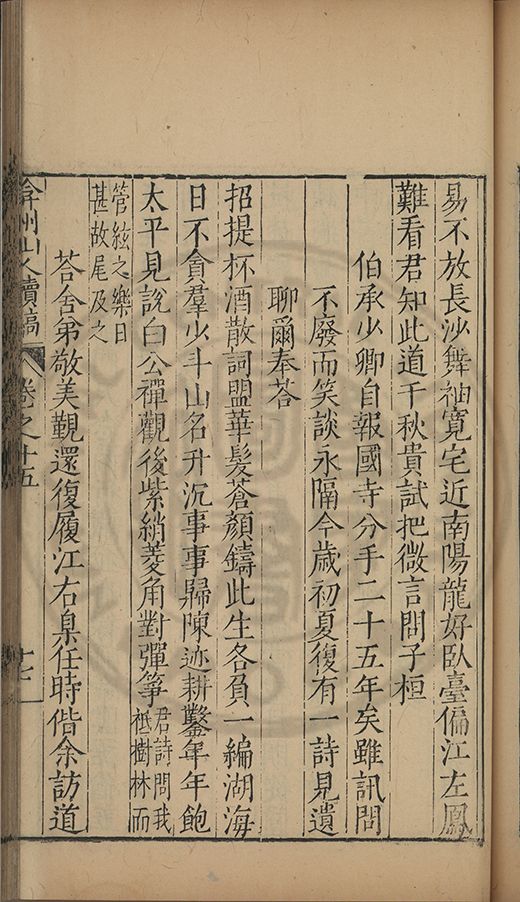 易不放長沙舞袖寬宅近南陽龍好臥臺偏江左鳳
難看君知此道千秋貴試把微言問子桓
伯承少卿自報國寺分手二十五年矣雖訊問
不廢而笑談永隔今歲初夏復有一詩見遺
聊爾奉荅
招提杯酒散詞盟華髮蒼顏鑄此生各負一編湖海
日不貪羣少斗山名升沉事事歸陳迹耕鑿年年飽
太平見說白公禪觀後紫綃菱角對彈箏
君詩問我
祗樹林而
管絃之樂日
甚故尾及之
荅舍弟敬美覲還復履江右臬任時偕余訪道
弇州山人續稿
卷之十五
十七